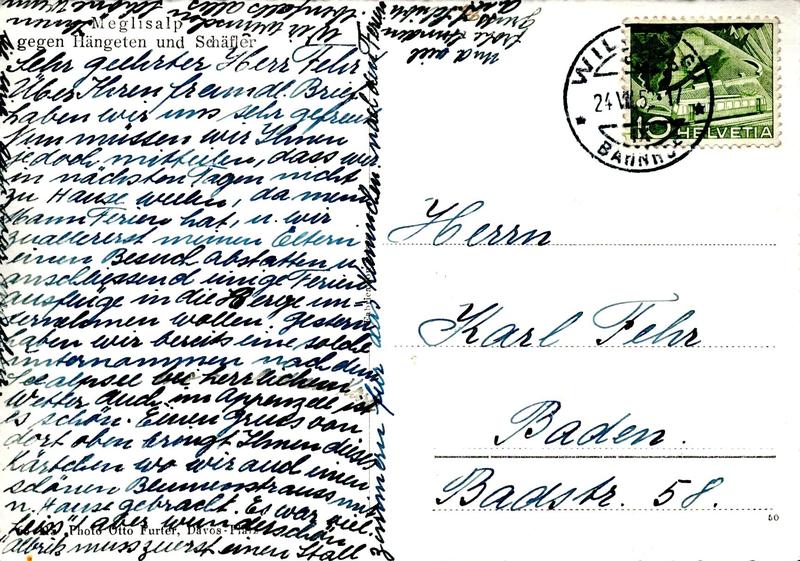 Meglisalp
gegen Hängeten und Schäfler
Sehr geehrter Herr Fehr
Über Ihren freundl. Brief
haben wir uns sehr gefreut
Nun müssen wir Ihnen
jedoch mitteilen, dass wir
in nächsten Tagen nicht
zu Hause weilen, da mein
Mann Ferien hat, u. wir
zuallererst meinen Eltern
einen Besuch abstatten u.
anschliessend einige Ferien
ausflüge in die Berge un-
ternehmen wollen. Gestern
haben wir bereits eine solche
unternommen nach dem
Seealpsee bei herrlichem
Wetter. Auch im Appenzell ist
es schön. Einen Gruss von
dort oben bringt Ihnen dieses
Kärtchen wo wir auch einen
schönen Blumenstrauss mit
n. Hause gebracht. Es war viel
heiss, aber wunderschön
Photo Otto Furter, Davos-Platz
Albrik muss zuerst einen Stall
zimmern für das Kaninchen nach den Ferien
Wir wünschen
Ihnen
und viel
WIL
24 VII 5
BAHNHOF
10 HELVETIA
Herrn
Karl Fehr
Baden.
Badstr. 58.
50